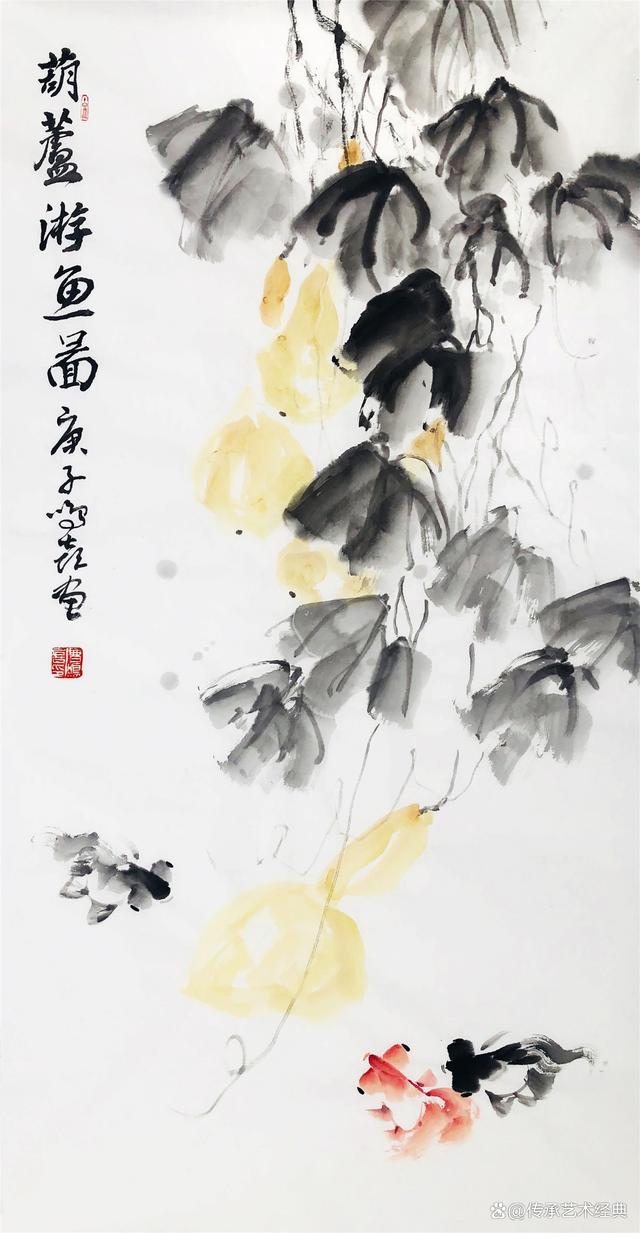 葫蘆游鱼圖庚子鸣喜画
@传承艺术经典